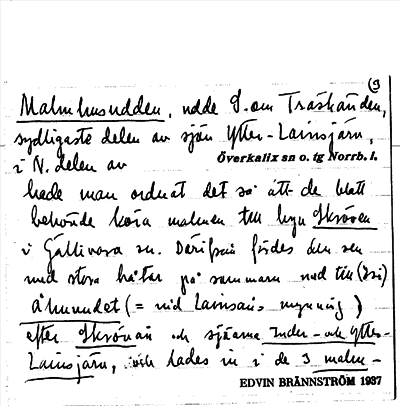 (9
Malmhusudden, udde S. om Träskänden,
sydligaste delen av sjön Ytter-Lainsjärv,
i N. delen av Överkalix sn o. tg Norrb. l.
hade man ordnat det så att de blott
behövde köra malmen till byn Skröven
i Gällivara sn. Därifrån fördes den sen
med stora båtar på sommaren ned till
åmunnet (= vid Lainaåns mynning)
efter Skrövån och sjöarna Inder- och Ytter-
Lainsjärv, och lades in i de 3 malm-
EDVIN BRÄNNSTRÖM 1937